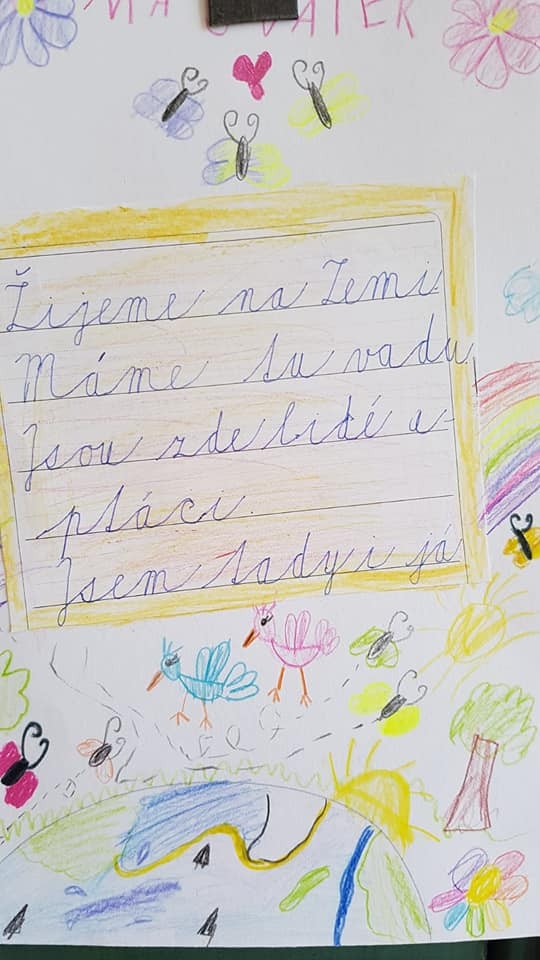 MÁ SVÁTEK
Žijeme na Zemi.
Máme tu vodu,
Jsou zde lidé a
ptáci.
Jsem tady i já